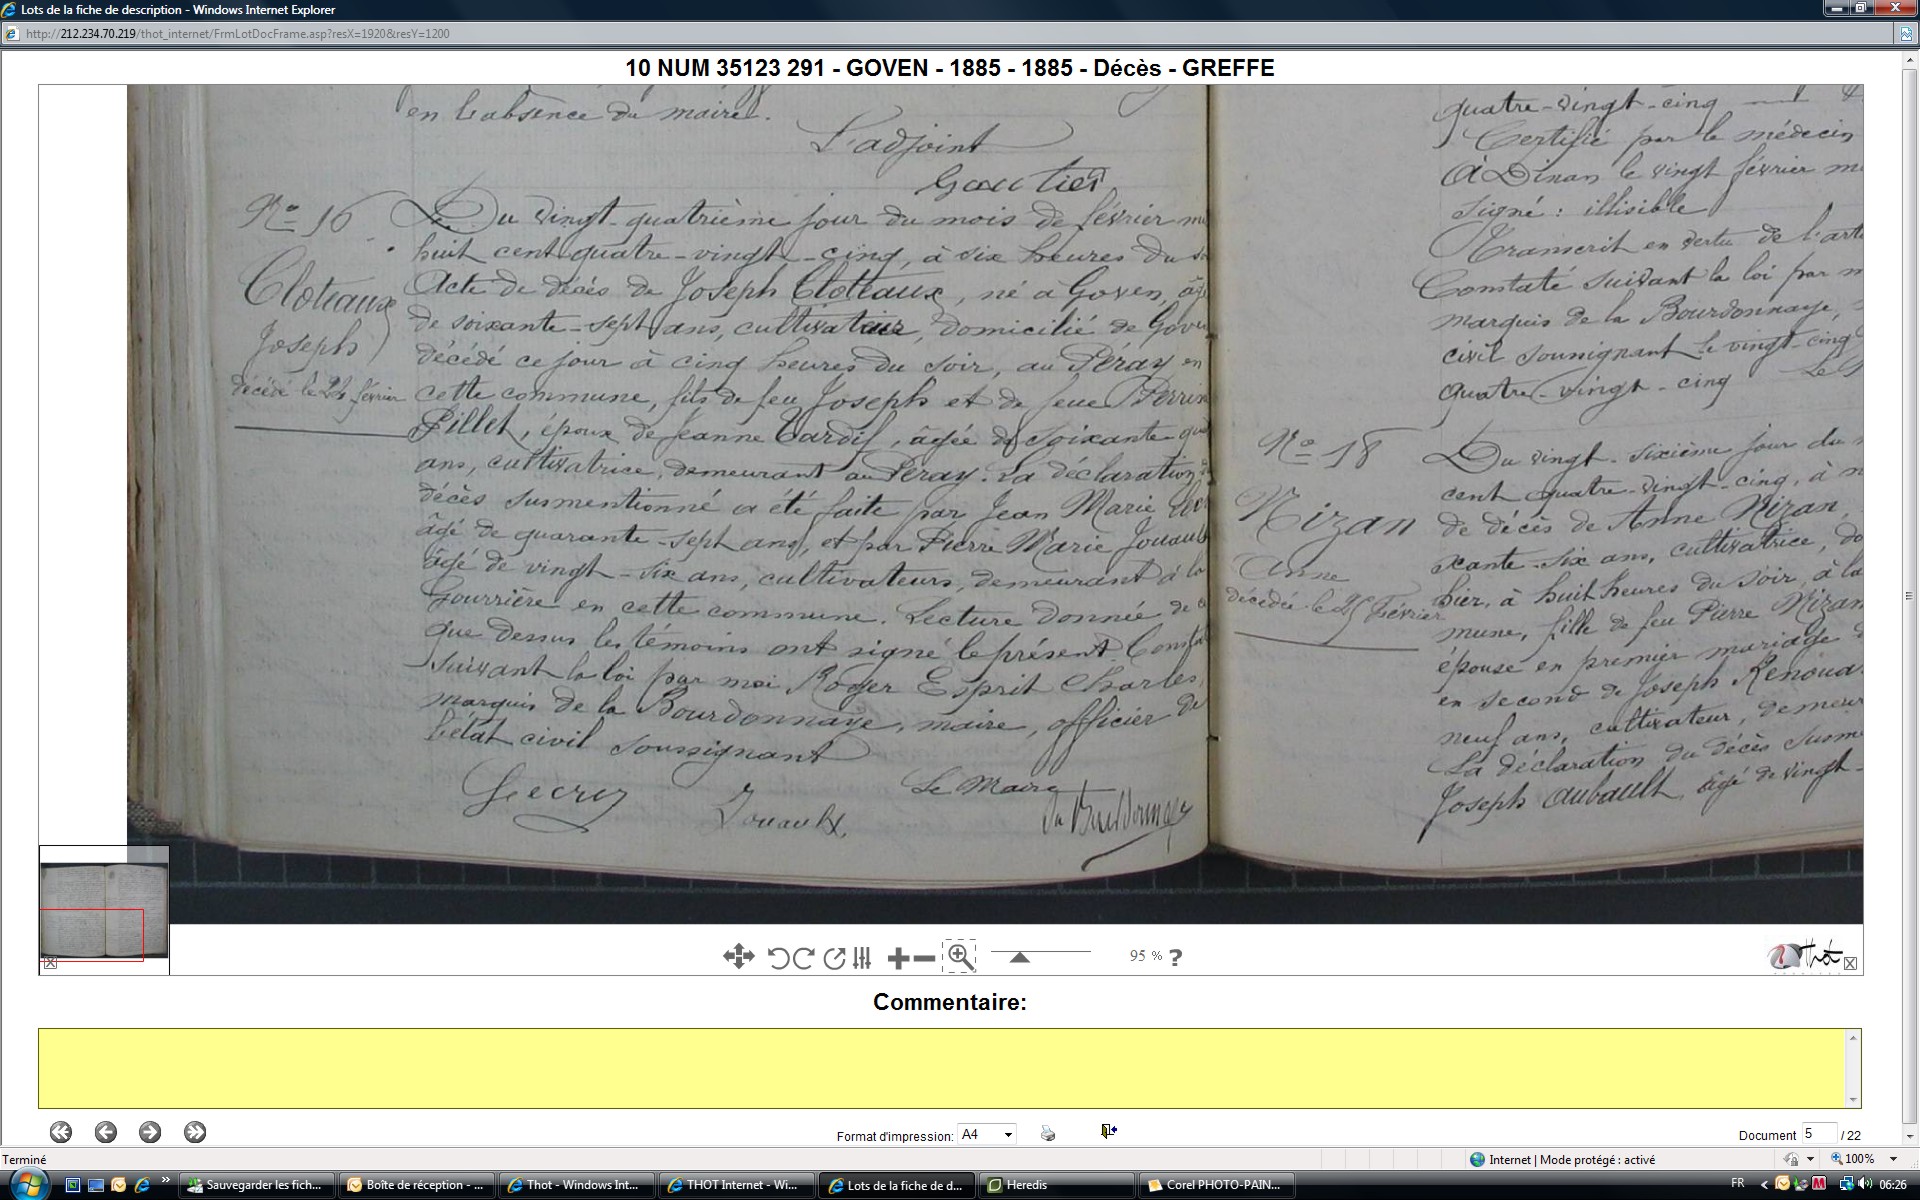 Lots de la fiche de description - Windows Internet Explorer
http://212.234.70.219/thot_internet/FrmLotDocFrame.asp?resX=1920&resY=1200
10 NUM 35123 291 - GOVEN - 1885 - 1885 - Décès - GREFFE
en l'absence du maire.
L'adjoint
Gautier
No 16
Cloteaux
Joseph
décédé le 24 février
Du vingt-quatrième jour du mois de février
huit cent quatre-vingt-cinq, à six heures du
Acte de décés de Joseph Cloteaux, né à Goven,
de soixante-sept ans, cultivateur, domicilié de
décédé ce jour à cinq heures du soir, au Péray en
cette commune, fils de feu Joseph et de feue
Pillet, époux de Jeanne Tardif, âgée de soixante
ans, cultivatrice, demeurant au Péray. La déclaration
décès susmentionné a été faite par Jean Marie
âgé de quarante-sept ans, et par Pierre Marie Jouault
âgé de vingt-six ans, cultivateurs, demeurant à la
en cette commune. Lecture donnée de
que dessus les témoins ont signé le présent.
suivant la loi par moi Roger Esprit Charles,
marquis de la Bourdonnaye, maire, officier de
l'état civil soussignant
Jouault
Le Maire
quatre-vingt-cinq
Certifié par le médecin
à Dinan le vingt février
signé : illisible
Transcrit en vertu de
Constaté suivant la loi par
marquis de la Bourdonnaye,
civil soussignant le vingt-cinq
quatre-vingt-cinq
No 18
Nizan
Anne
décédée le 25 février
Du vingt-sixième jour du
cent quatre-vingt-cinq, à
de décès de Anne Nizan,
xante-six ans, cultivatrice,
hier, à huit heures du soir, à la
mune, fille de feu Pierre Nizan
épouse en premier mariage
en second de Joseph
neuf ans, cultivateur,
La déclaration du décès
Joseph Aubault, âgé de vingt-
95 % ?
Thot
Commentaire:
Format d'impression: A4
Document 5 / 22
Terminé
Internet | Mode protégé : activé
100%
Sauvegarder les fich...
Boîte de réception - ...
Thot - Windows Int...
THOT Internet - Wi...
Lots de la fiche de d...
Heredis
Corel PHOTO-PAIN...
FR
06:26